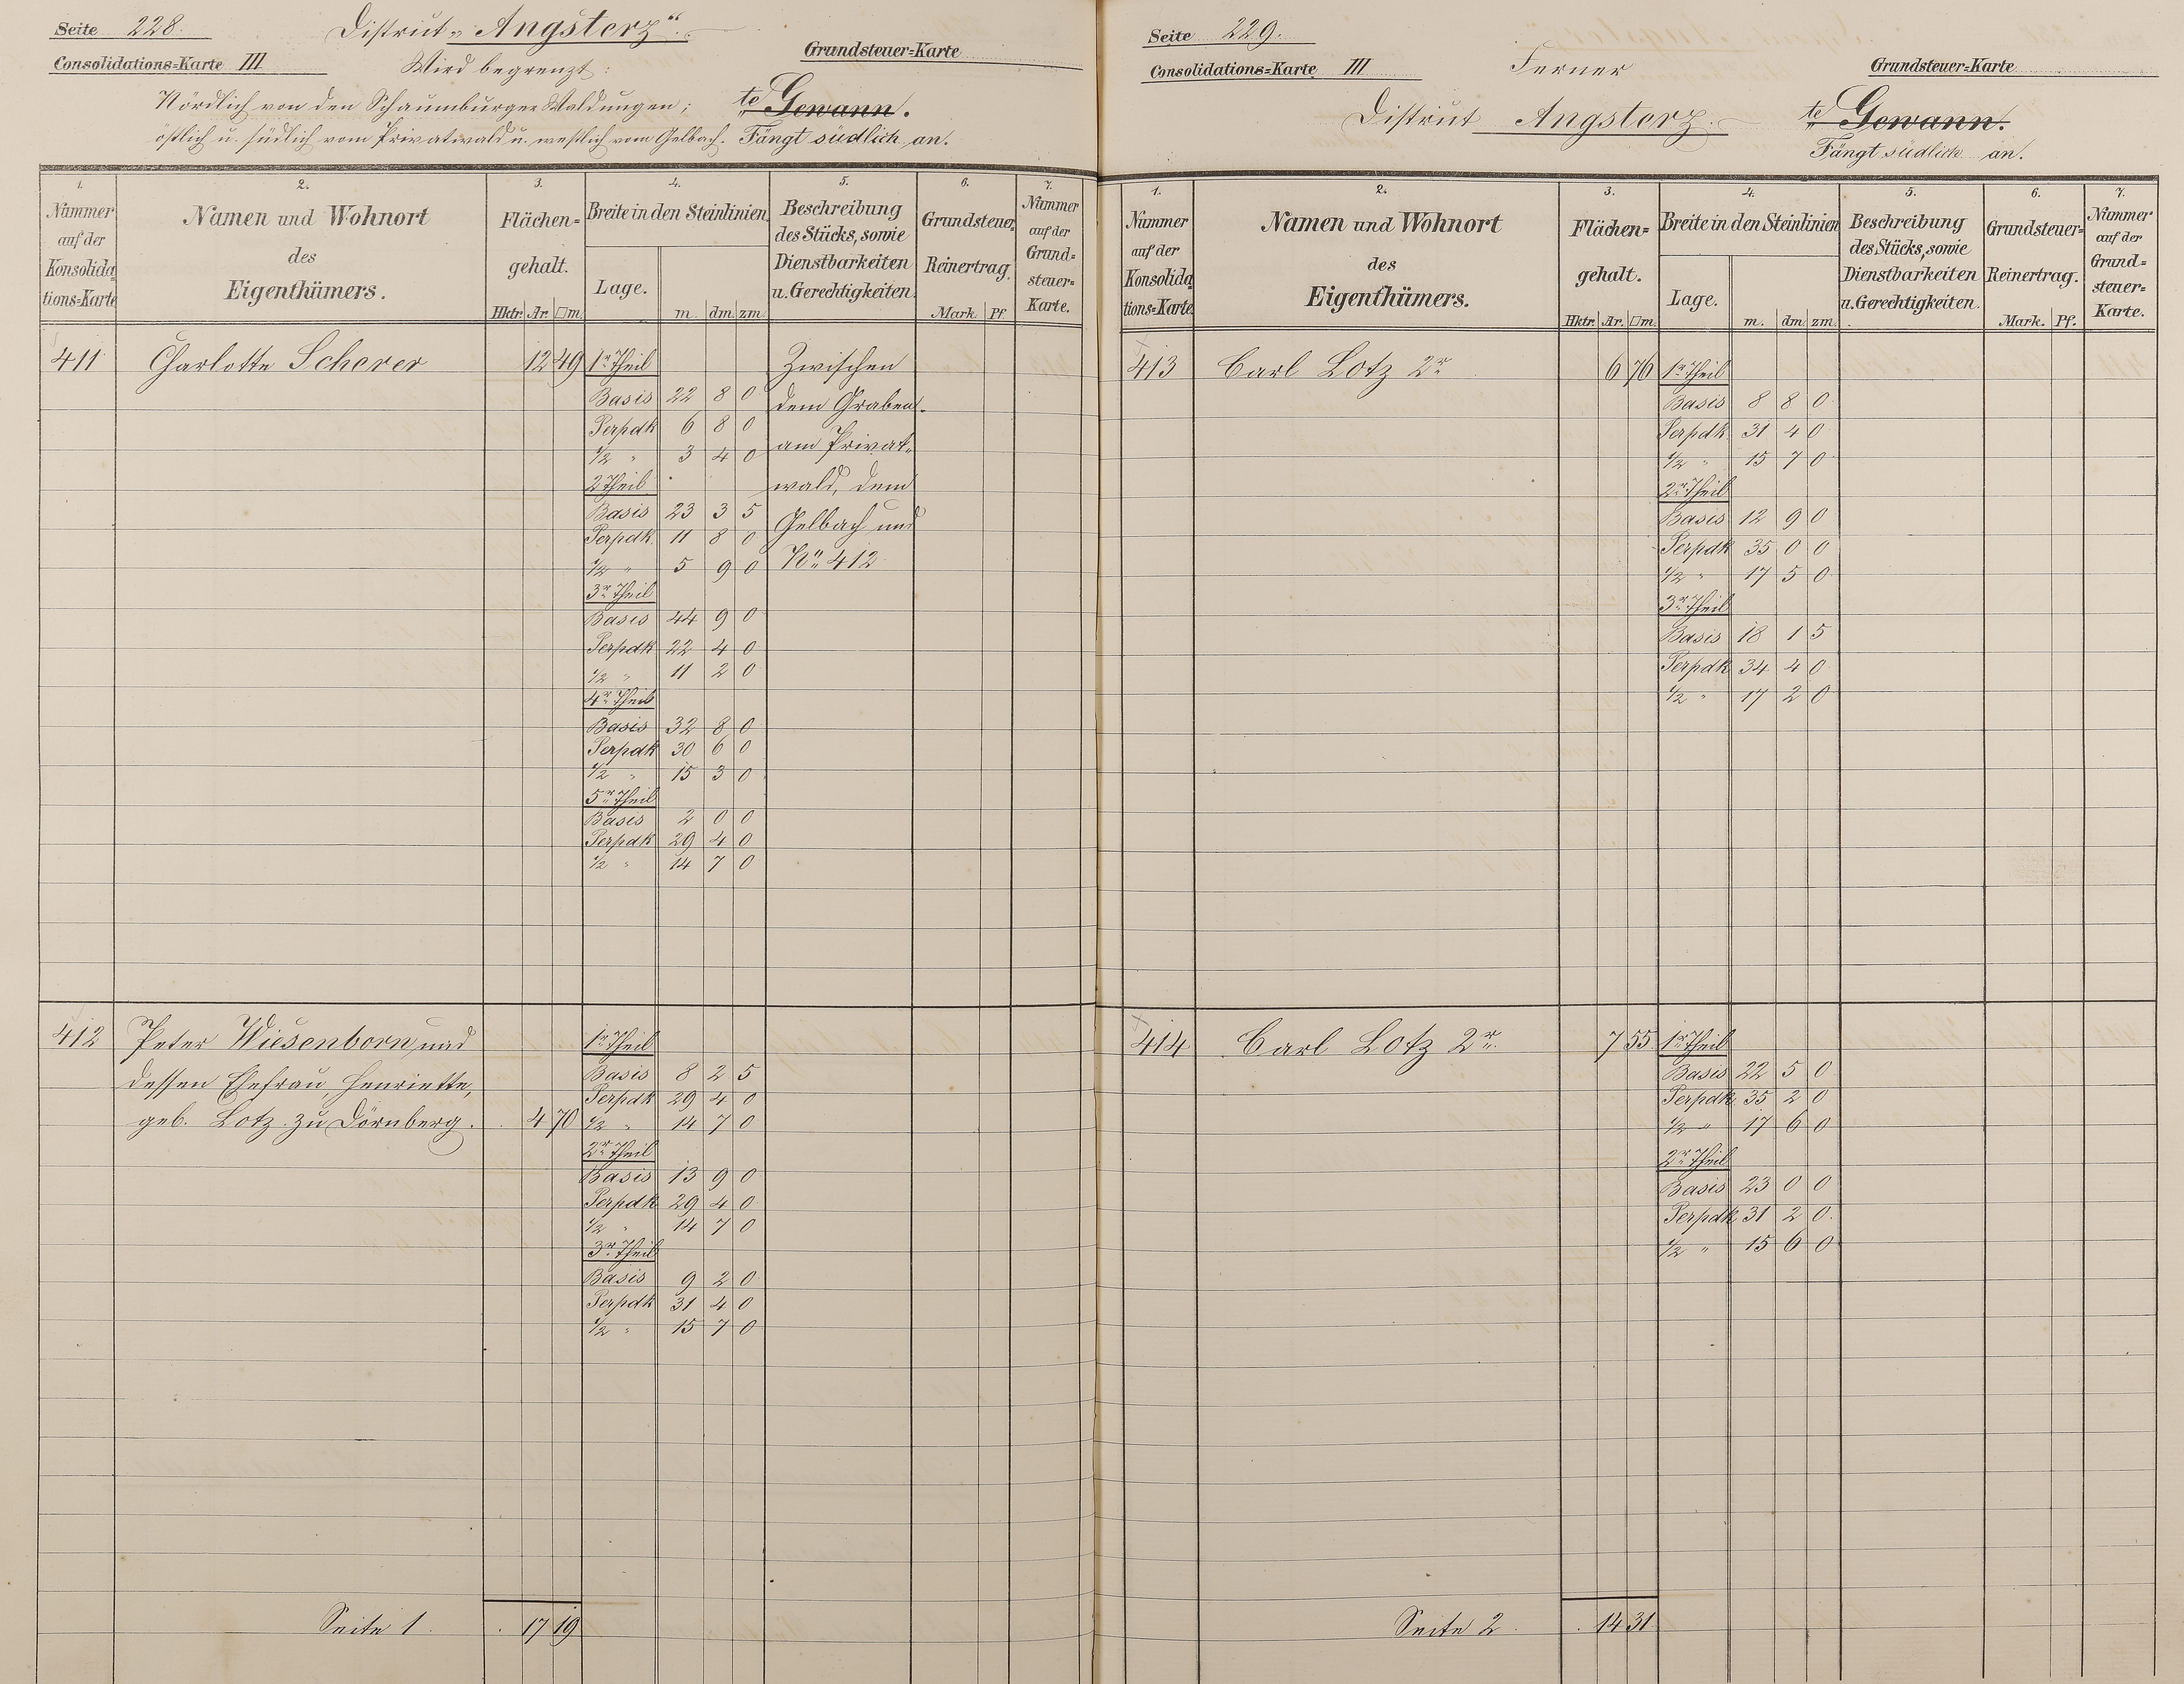 Seite 228.
Distrikt „Angsterz“.
Consolidations=Karte III
Wird begrenzt:
Grundsteuer=Karte
Nördlich von den Schaumburger Waldungen;
te Gewann.
östlich u. südlich vom Privatwald u. westlich vom Gelbach.
Fängt südlich an.
1. 2. 3. 4. 5. 6. 7.
Nummer auf der Konsolidations=Karte
Namen und Wohnort
des
Eigenthümers.
Flächen=
gehalt.
Hktr. Ar. □m.
Breite in den Steinlinien
Lage. m. dm. zm.
Beschreibung
des Stücks, sowie
Dienstbarkeiten
u. Gerechtigkeiten.
Grundsteuer=
Reinertrag.
Mark. Pf.
Nummer
auf der
Grund=
steuer=
Karte.
411 Charlotte Scherer 12 49 1r Theil Zwischen
Basis 22 8 0 dem Graben
Perpdk 6 8 0
1/2 " 3 4 0 am Privat-
2 Theil wald, dem
Basis 23 3 5 Gelbach und
Perpdk 11 8 0
1/2 " 5 9 0 No 412
3r Theil
Basis 44 9 0
Perpdk 22 4 0
1/2 " 11 2 0
4r Theil
Basis 32 8 0
Perpdk 30 6 0
1/2 " 15 3 0
5r Theil
Basis 2 0 0
Perpdk 29 4 0
1/2 " 14 7 0
412 Peter Wiesenborn und 1r Theil
dessen Ehefrau, Henriette, Basis 8 2 5
Perpdk 29 4 0
geb. Lotz zu Dörnberg. 4 70 1/2 " 14 7 0
2r Theil
Basis 13 9 0
Perpdk 29 4 0
1/2 " 14 7 0
3r Theil
Basis 9 2 0
Perpdk 31 4 0
1/2 " 15 7 0
Seite 1. 17 19
Seite 229.
Consolidations=Karte III
Ferner
Grundsteuer=Karte
Distrikt Angsterz.
te Gewann.
Fängt südlich an.
1. 2. 3. 4. 5. 6. 7.
Nummer
auf der
Konsolida
tions=Karte.
Namen und Wohnort
des
Eigenthümers.
Flächen=
gehalt.
Hktr. Ar. □m.
Breite in den Steinlinien
Lage. m. dm. zm.
Beschreibung
des Stücks, sowie
Dienstbarkeiten
u. Gerechtigkeiten.
Grundsteuer=
Reinertrag.
Mark. Pf.
Nummer
auf der
Grund=
steuer=
Karte.
413 Carl Lotz 2r 6 76 1r Theil
Basis 8 8 0
Perpdk 31 4 0
1/2 " 15 7 0
2r Theil
Basis 12 9 0
Perpdk 35 0 0
1/2 " 17 5 0
3r Theil
Basis 18 1 5
Perpdk 34 4 0
1/2 " 17 2 0
414 Carl Lotz 2r. 7 55 1r Theil
Basis 22 5 0
Perpdk 35 2 0
1/2 " 17 6 0
2r Theil
Basis 23 0 0
Perpdk 31 2 0
1/2 " 15 6 0
Seite 2. 14 31